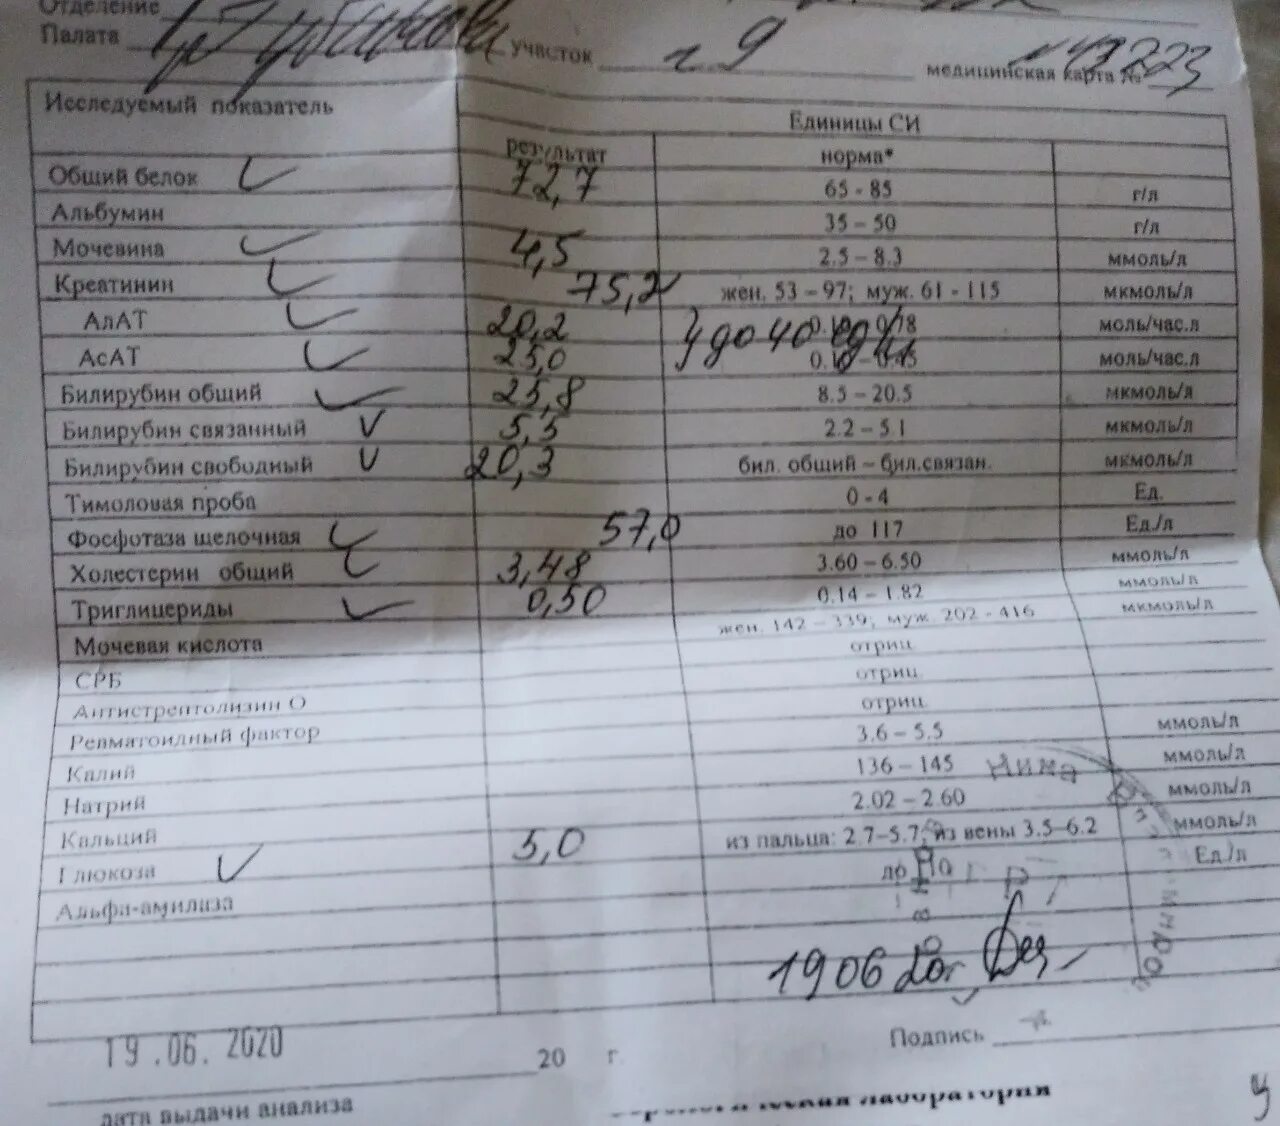 Отделение
Палата участок г. 9 медицинская карта № 49223
Исследуемый показатель Единицы СИ
результат норма*
Общий белок 72,7 65 - 85 г/л
Альбумин 35 – 50 г/л
Мочевина 4,5 2.5 – 8.3 ммоль/л
Креатинин 75,2 жен. 53 – 97; муж. 61 - 115 мкмоль/л
АлАТ 20,2 до 40 ед/л моль/час.л
АсАТ 23,0 моль/час.л
Билирубин общий 25,8 8.5 – 20.5 мкмоль/л
Билирубин связанный 5,5 2.2 – 5.1 мкмоль/л
Билирубин свободный 20,3 бил. общий – бил.связан. мкмоль/л
Тимоловая проба 0 - 4 Ед.
Фосфотаза щелочная 57,0 до 117 Ед./л
Холестерин общий 3,48 3.60 – 6.50 ммоль/л
Триглицериды 0,50 0.14 – 1.82 ммоль/л
Мочевая кислота жен. 142 – 339; муж. 202 - 416 мкмоль/л
СРБ отриц
Антистрептолизин О отриц
Ревматоидный фактор отриц
Калий 3.6 – 5.5 ммоль/л
Натрий 136 – 145 ммоль/л
Кальций 2.02 – 2.60 ммоль/л
Глюкоза 5,0 из пальца: 2.7–5.7; из вены 3.5–6.2 ммоль/л
Альфа-амилаза до Ед./л
1906 20г.
19.06.2020 20 г. Подпись
дата выдачи анализа лаборатория